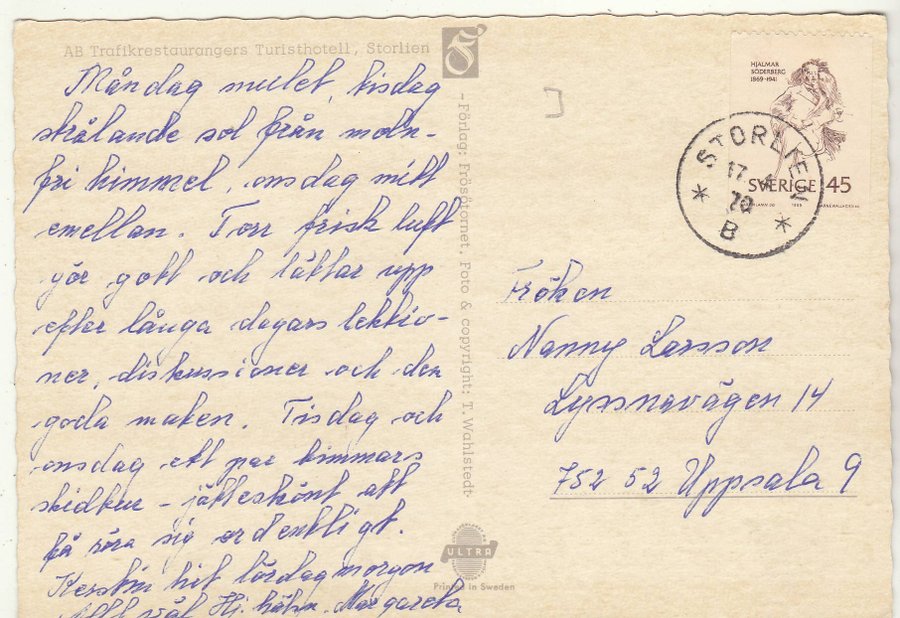 AB Trafikrestaurangers Turisthotell, Storlien
Måndag mulet, tisdag
strålande sol från moln-
fri himmel, onsdag mitt
emellan. Torr frisk luft
gör gott och lättar upp
efter långa dagars lektio-
ner, diskussioner och den
goda maten. Tisdag och
onsdag ett par timmars
skidtur - jätteskönt att
få röra sig ordentligt.
Kerstin hit lördag morgon
Allt väl Hj. häln. Margareta
-Förlag: Frösötornet. Foto & copyright: T. Wahlstedt
ULTRA
Printed in Sweden
HJALMAR
SÖDERBERG
1869-1941
SVERIGE 45
STORLIEN
17 4
70
B
Fröken
Nanny Larsson
Lyssnavägen 14
752 52 Uppsala 9